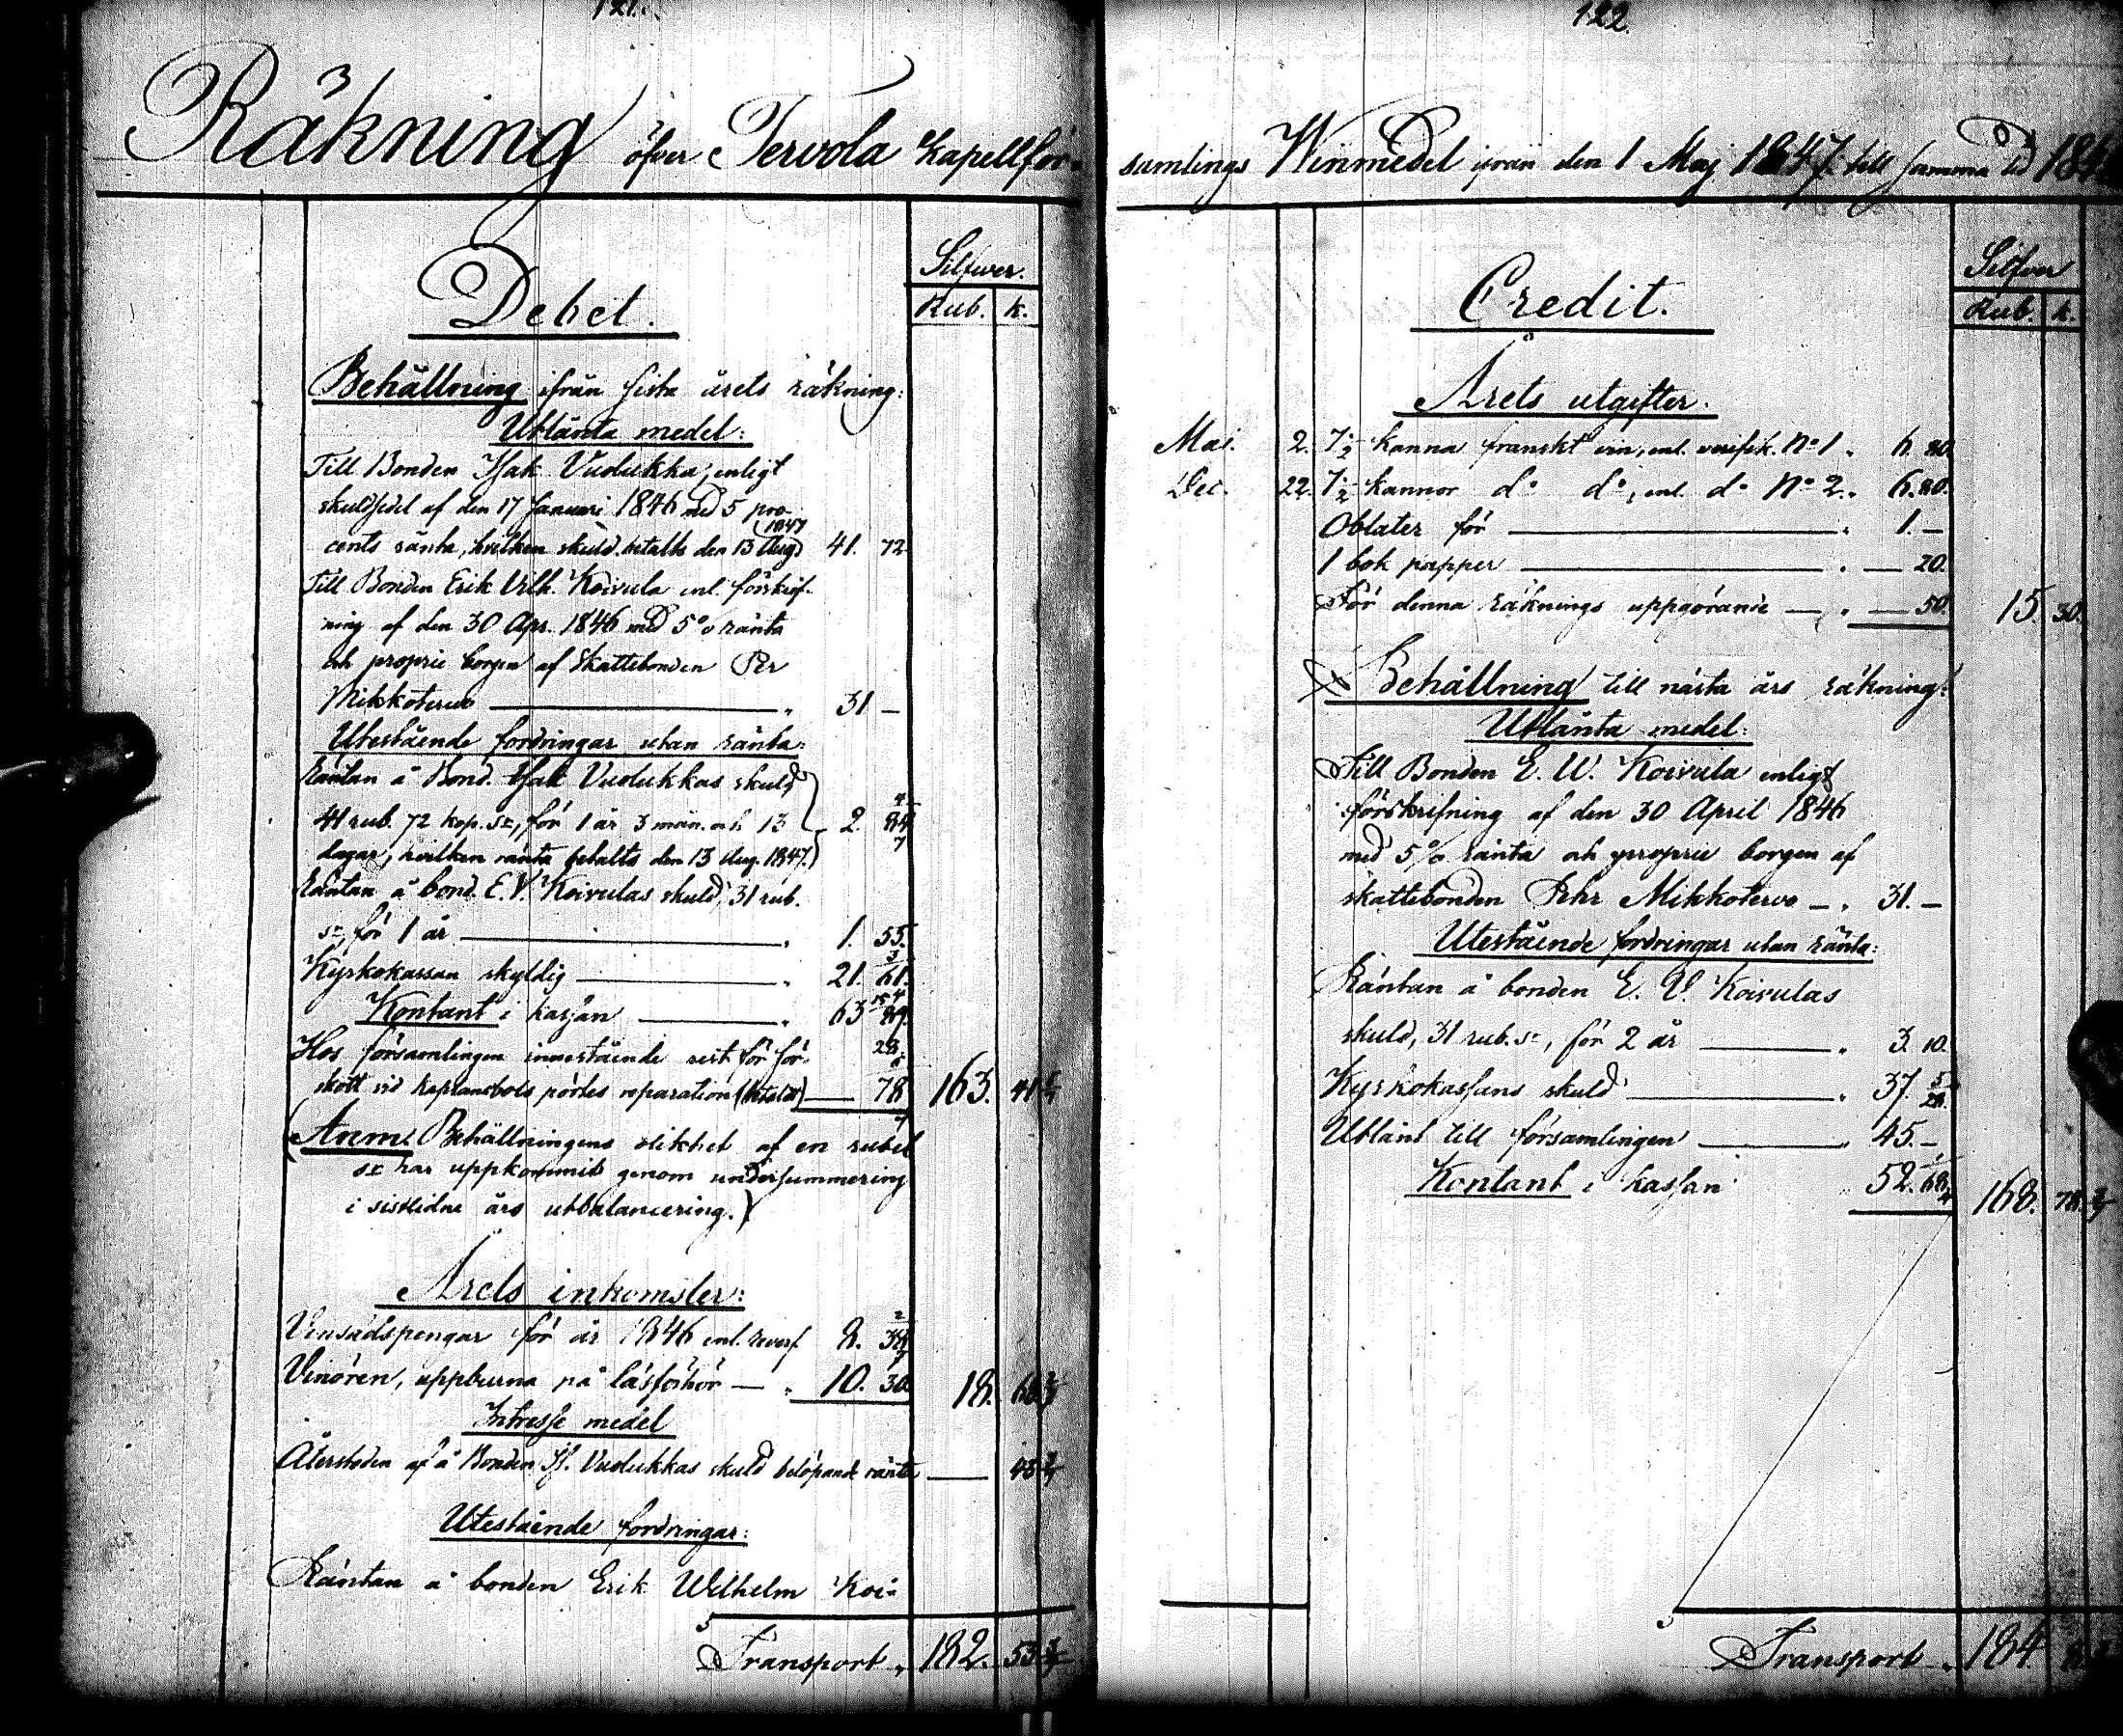 121.
Räkning öfver Tervola Kapellför-
Debet.
Silfwer.
Rub. k.
Behållning ifrån sista årets räkning:
Utlånta medel:
Till Bonden Isak Vuolukka, enligt
skuldsedel af den 17 Januari 1846 med 5 pro-
1847
cents ränta, hvilken skuld betalts den 13 Aug. 41. 72
Till Bonden Erik Vilh. Koivula enl. förskrif-
ning af den 30 Apr. 1846 med 5% ränta
och proprie borgen af Skattebonden Per
Mikkoterwo — " 31 —
Utestående fordringar utan ränta:
Räntan å Bond. Isak Vuolukkas skuld
41 rub. 72 kop. Sr, för 1 år 3 mån. och 13 2. 84 4/7
dagar, hvilken ränta betalts den 13 Aug. 1847.
Räntan å bond. E. V. Koivulas skuld, 31 rub.
Sr, för 1 år — " 1. 55.
Kyrkokassan skyldig — " 21. 61.
Kontant i kassan — " 63
Hos församlingen innestående rest för för-
skott vid kaplansbols pörtes reparation (betald) — 78 163. 41
(Anm. Behållningens olikhet af en rubel
Sr har uppkommit genom undersummering
i sistlidne års utbalancering.)
Årets inkomster:
Vinsädspengar för år 1846 enl. revers 8. 38 2/7
Vinören, uppburna på läsförhör — " 10. 30. 18. 68 2/7
Intresse medel
Återstoden af å Bonden Is. Vuolukkas skuld belöpande ränta — 43
Utestående fordringar:
Räntan å bonden Erik Wilhelm Koi-
Transport " 182. 53
122.
samlings Winmedel ifrån den 1 Maj 1847. till samma tid
Credit.
Silfver
Rub. k.
Årets utgifter.
Mai. 2. 7½ kanna franskt vin, enl. verifik. No 1 " 6. 80.
Dec. 22. 7½ kannor do do, enl. do No 2. " 6. 80.
Oblater för — " 1. —
1 bok papper — " — 20.
För denna räknings uppgörande — " — 50. 15. 30.
Behållning till nästa års räkning:
Utlånta medel:
Till Bonden E. W. Koivula enligt
förskrifning af den 30 April 1846
med 5% ränta och proprie borgen af
skattebonden Pehr Mikkoterwo — " 31. —
Utestående fordringar utan ränta:
Räntan å bonden E. V. Koivulas
skuld, 31 rub. Sr, för 2 år — " 3 10.
Kyrkokassans skuld — " 37. 28.
Utlånt till församlingen — " 45. —
Kontant i kassan " 52. 168. 78
Transport " 184